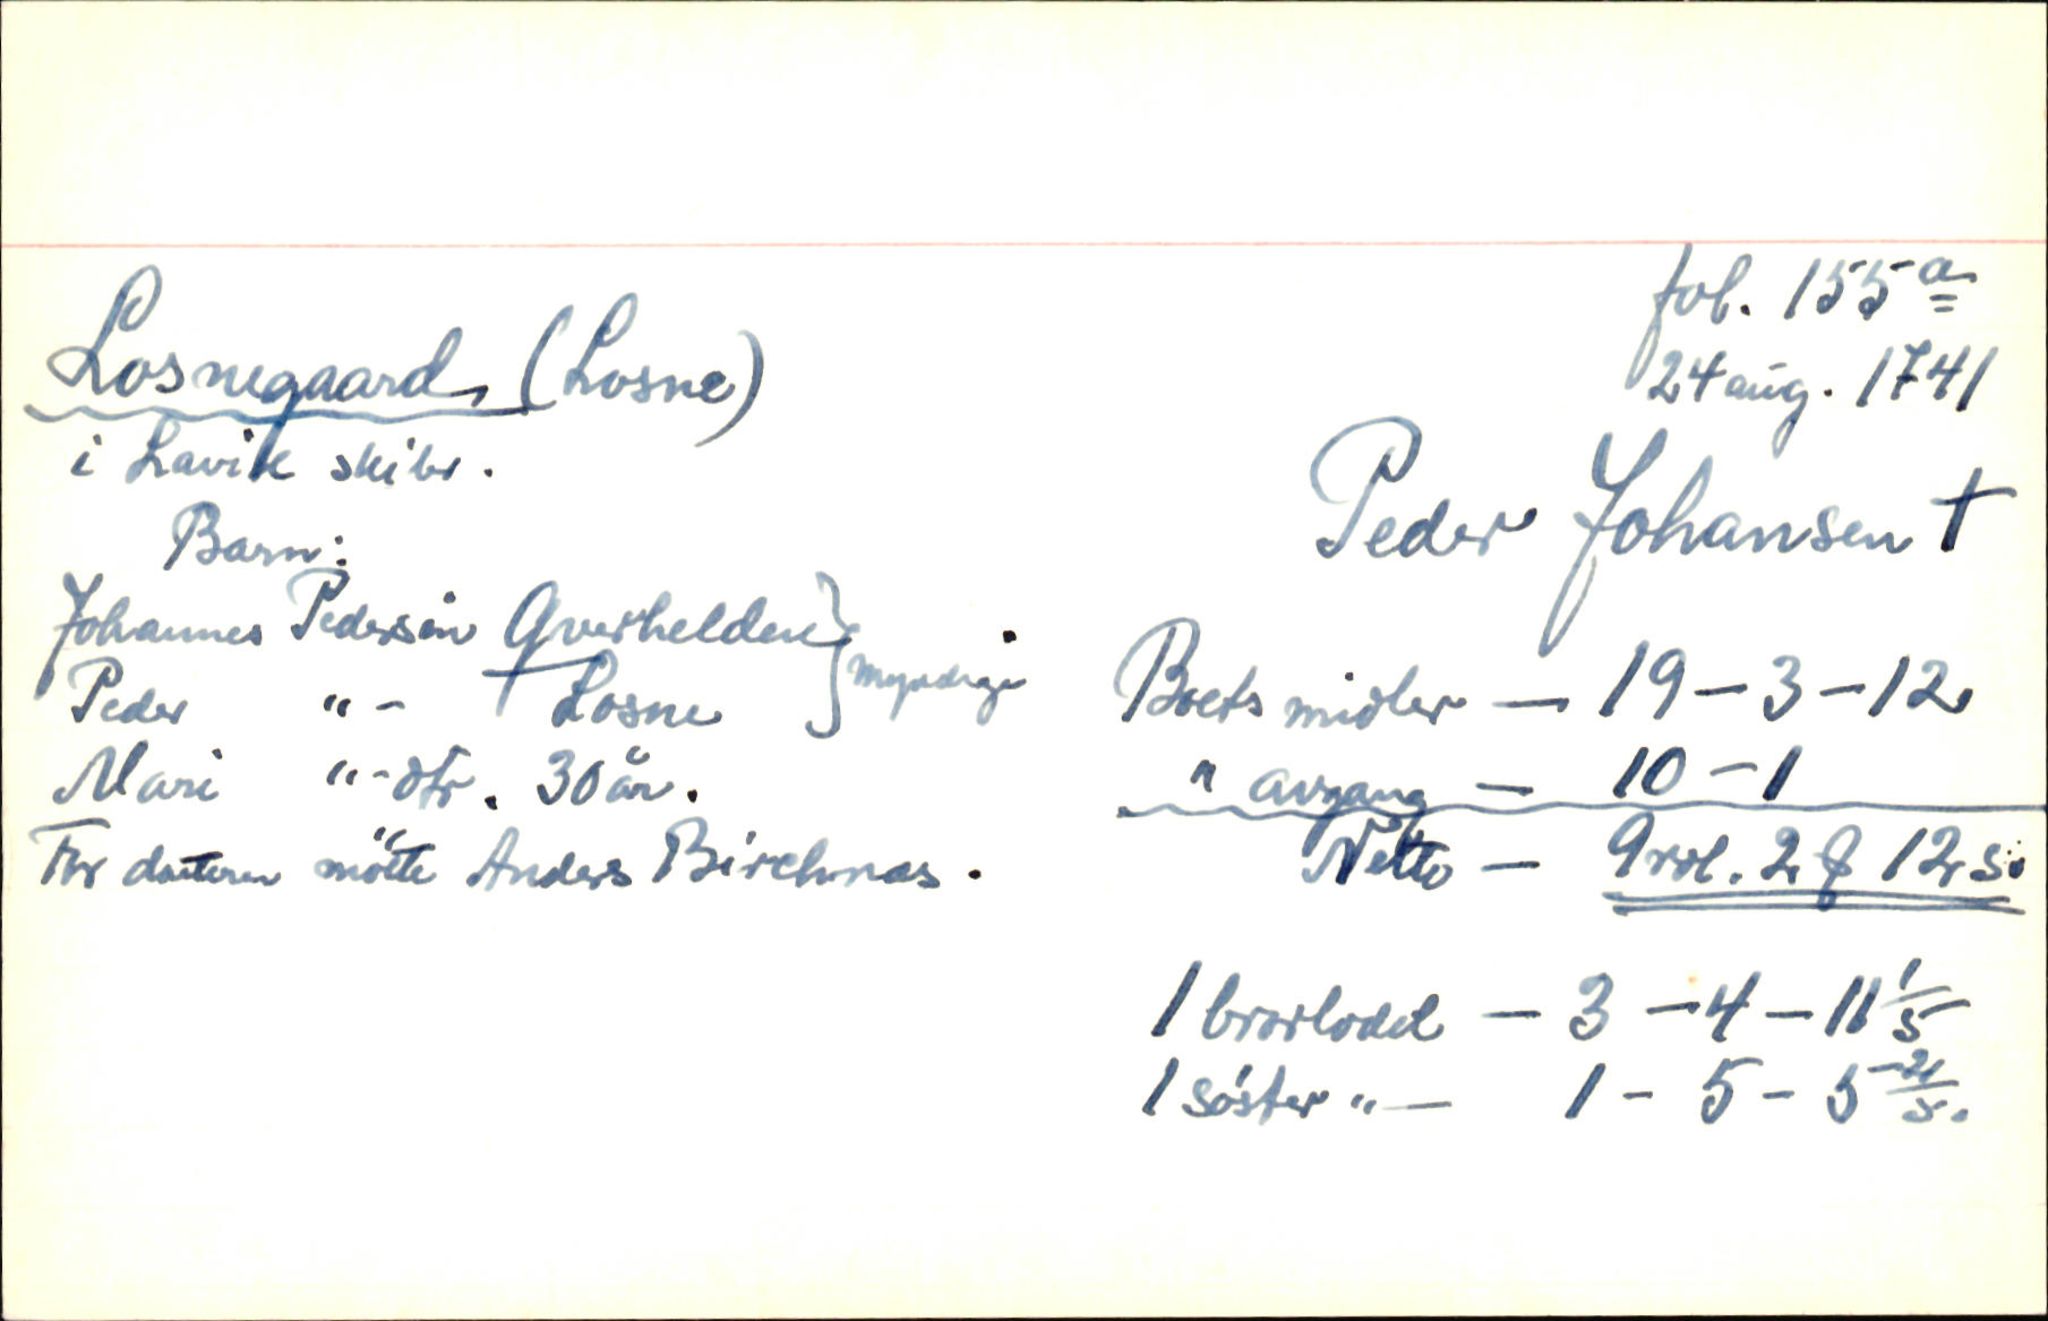 fol. 155 a
24 aug. 1741
Losnegaard (Losne)
i Lavik skibr.
Peder Johansen †
Barn:
Johannes Pedersen Qverhelden } myndige
Peder "- Losne
Mari "-dtr. 30 år.
For datteren mötte Anders Birchnas.
Boets midler — 19 — 3 — 12
" avgang — 10 — 1
Netto — 9 rdl. 2 ℔ 12 s.
1 brorlodd — 3 — 4 — 11 1/5
1 söster "— 1 - 5 - 5 2/5.